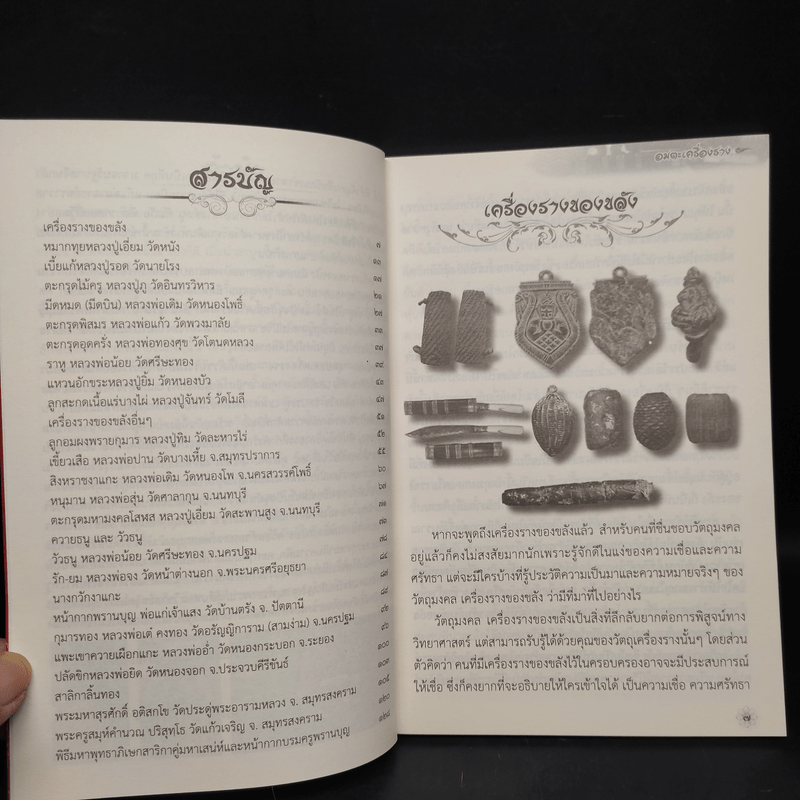 สารบัญ
เครื่องรางของขลัง ๗
หมากทุยหลวงปู่เอี่ยม วัดหนัง ๑๓
เบี้ยแก้หลวงปู่รอด วัดนายโรง ๑๗
ตะกรุดไม้ครู หลวงปู่ภู วัดอินทรวิหาร ๒๑
มีดหมด (มีดบิน) หลวงพ่อเดิม วัดหนองโพธิ์ ๒๗
ตะกรุดพิสมร หลวงพ่อแก้ว วัดพวงมาลัย ๓๑
ตะกรุดอุดครั่ง หลวงพ่อทองศุข วัดโตนดหลวง ๓๔
ราหู หลวงพ่อน้อย วัดศรีษะทอง
แหวนอักขระหลวงปู่ยิ้ม วัดหนองบัว ๔๓
ลูกสะกดเนื้อแร่บางไผ่ หลวงปู่จันทร์ วัดโมลี ๔๗
เครื่องรางของขลังอื่นๆ ๕๑
ลูกอมผงพรายกุมาร หลวงปู่ทิม วัดละหารไร่ ๕๒
เขี้ยวเสือ หลวงพ่อปาน วัดบางเหี้ย จ.สมุทรปราการ ๕๕
สิงหราชงาแกะ หลวงพ่อเดิม วัดหนองโพ จ.นครสวรรค์โพธิ์ ๖๐
หนุมาน หลวงพ่อสุ่น วัดศาลากุน จ.นนทบุรี ๖๗
ตะกรุดมหามงคลโสฬส หลวงปู่เอี่ยม วัดสะพานสูง จ.นนทบุรี ๗๑
ควายธนู และ วัวธนู
วัวธนู หลวงพ่อน้อย วัดศรีษะทอง จ.นครปฐม
รัก-ยม หลวงพ่อจง วัดหน้าต่างนอก จ.พระนครศรีอยุธยา
นางกวักงาแกะ
หน้ากากพรานบุญ พ่อแก่เจ้าแสง วัดบ้านตรัง จ. ปัตตานี
กุมารทอง หลวงพ่อเต๋ คงทอง วัดอรัญญิการาม (สามง่าม) จ.นครปฐม
แพะเขาควายเผือกแกะ หลวงพ่ออ่ำ วัดหนองกระบอก จ.ระยอง ๑๐๐
ปลัดขิกหลวงพ่อยิด วัดหนองจอก จ.ประจวบคีรีขันธ์ ๑๐๓
สาลิกาลิ้นทอง ๑๐๕
พระมหาสุรศักดิ์ อติสกโข วัดประดู่พระอารามหลวง จ. สมุทรสงคราม
พระครูสมุห์คำนวณ ปริสุทฺโธ วัดแก้วเจริญ จ. สมุทรสงคราม
พิธีมหาพุทธาภิเษกสาริกาคู่มหาเสน่ห์และหน้ากากบรมครูพรานบุญ
อมตะเครื่องราง
เครื่องรางของขลัง
หากจะพูดถึงเครื่องรางของขลังแล้ว สำหรับคนที่ชื่นชอบวัตถุมงคล
อยู่แล้วก็คงไม่สงสัยมากนักเพราะรู้จักดีในแง่ของความเชื่อและความ
ศรัทธา แต่จะมีใครบ้างที่รู้ประวัติความเป็นมาและความหมายจริงๆ ของ
วัตถุมงคล เครื่องรางของขลัง ว่ามีที่มาที่ไปอย่างไร
วัตถุมงคล เครื่องรางของขลังเป็นสิ่งที่ลึกลับยากต่อการพิสูจน์ทาง
วิทยาศาสตร์ แต่สามารถรับรู้ได้ด้วยคุณของวัตถุเครื่องรางนั้นๆ โดยส่วน
ตัวคิดว่า คนที่มีเครื่องรางของขลังไว้ในครอบครองอาจจะมีประสบการณ์
ให้เชื่อ ซึ่งก็คงยากที่จะอธิบายให้ใครเข้าใจได้ เป็นความเชื่อ ความศรัทธา
๗